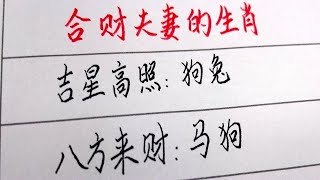 合财夫妻的生肖
吉星高照：狗兔
八方来财：马狗